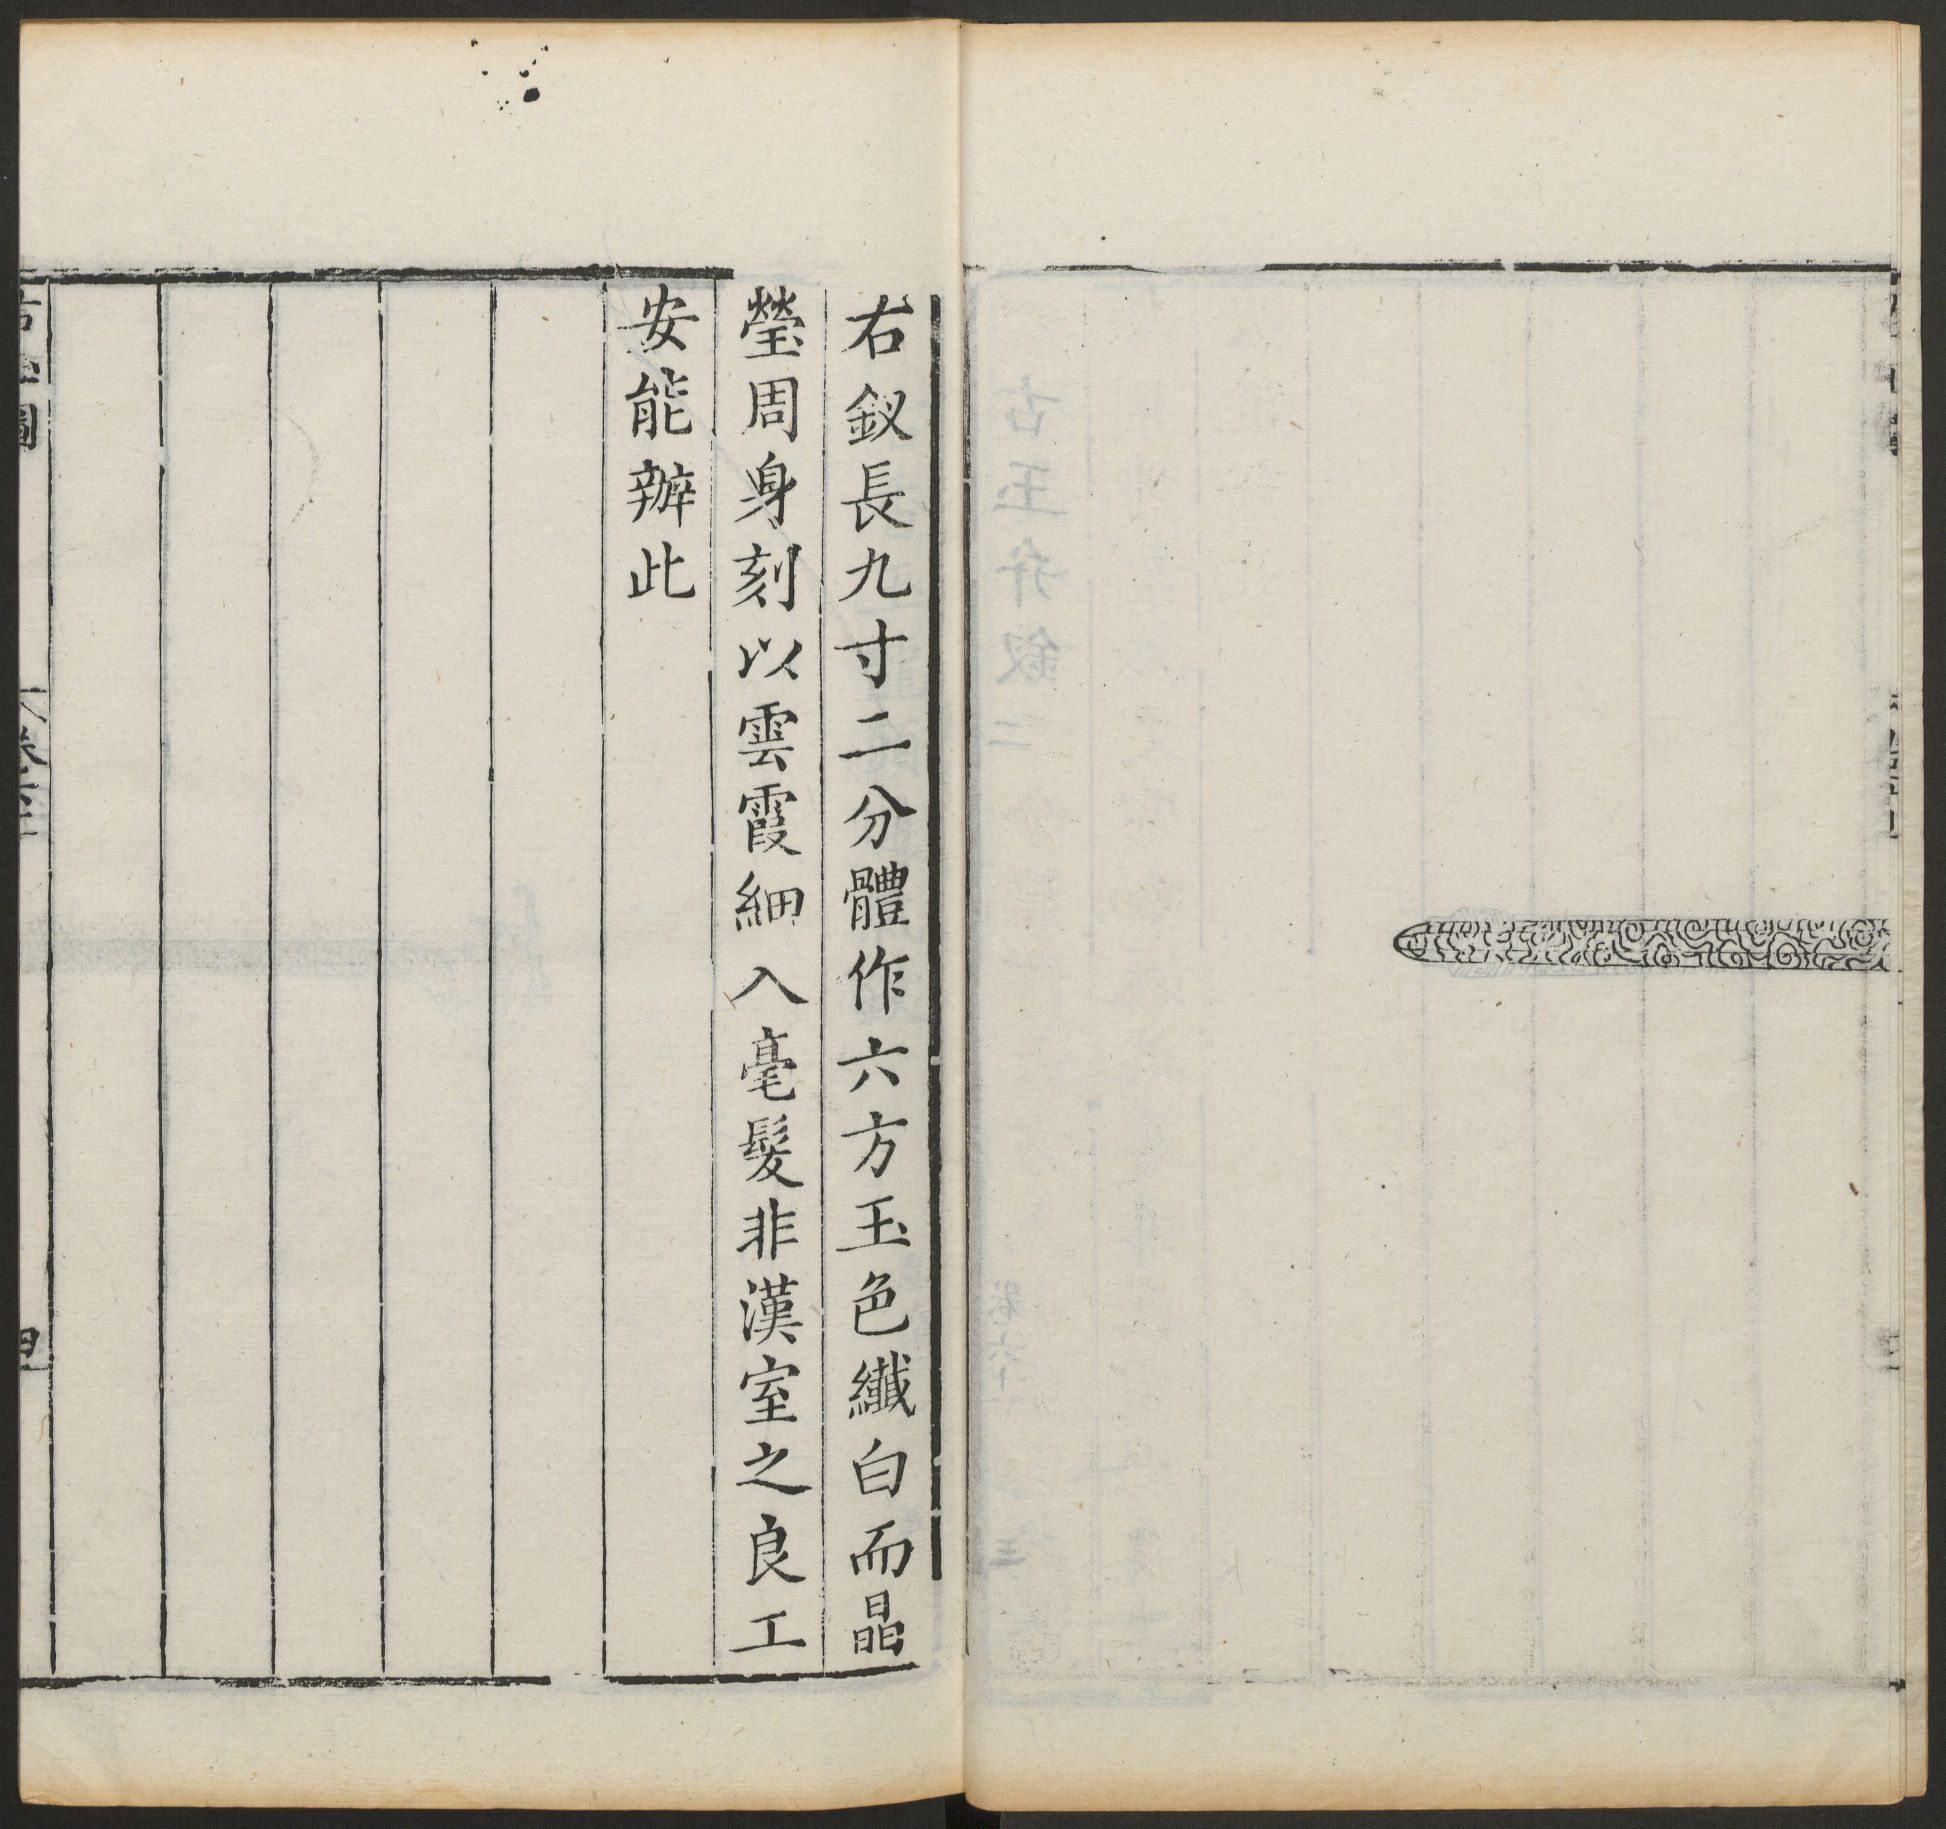 右釵長九寸二分體作六方玉色纖白而晶
瑩周身刻以雲霞細入毫髮非漢室之良工
安能辦此